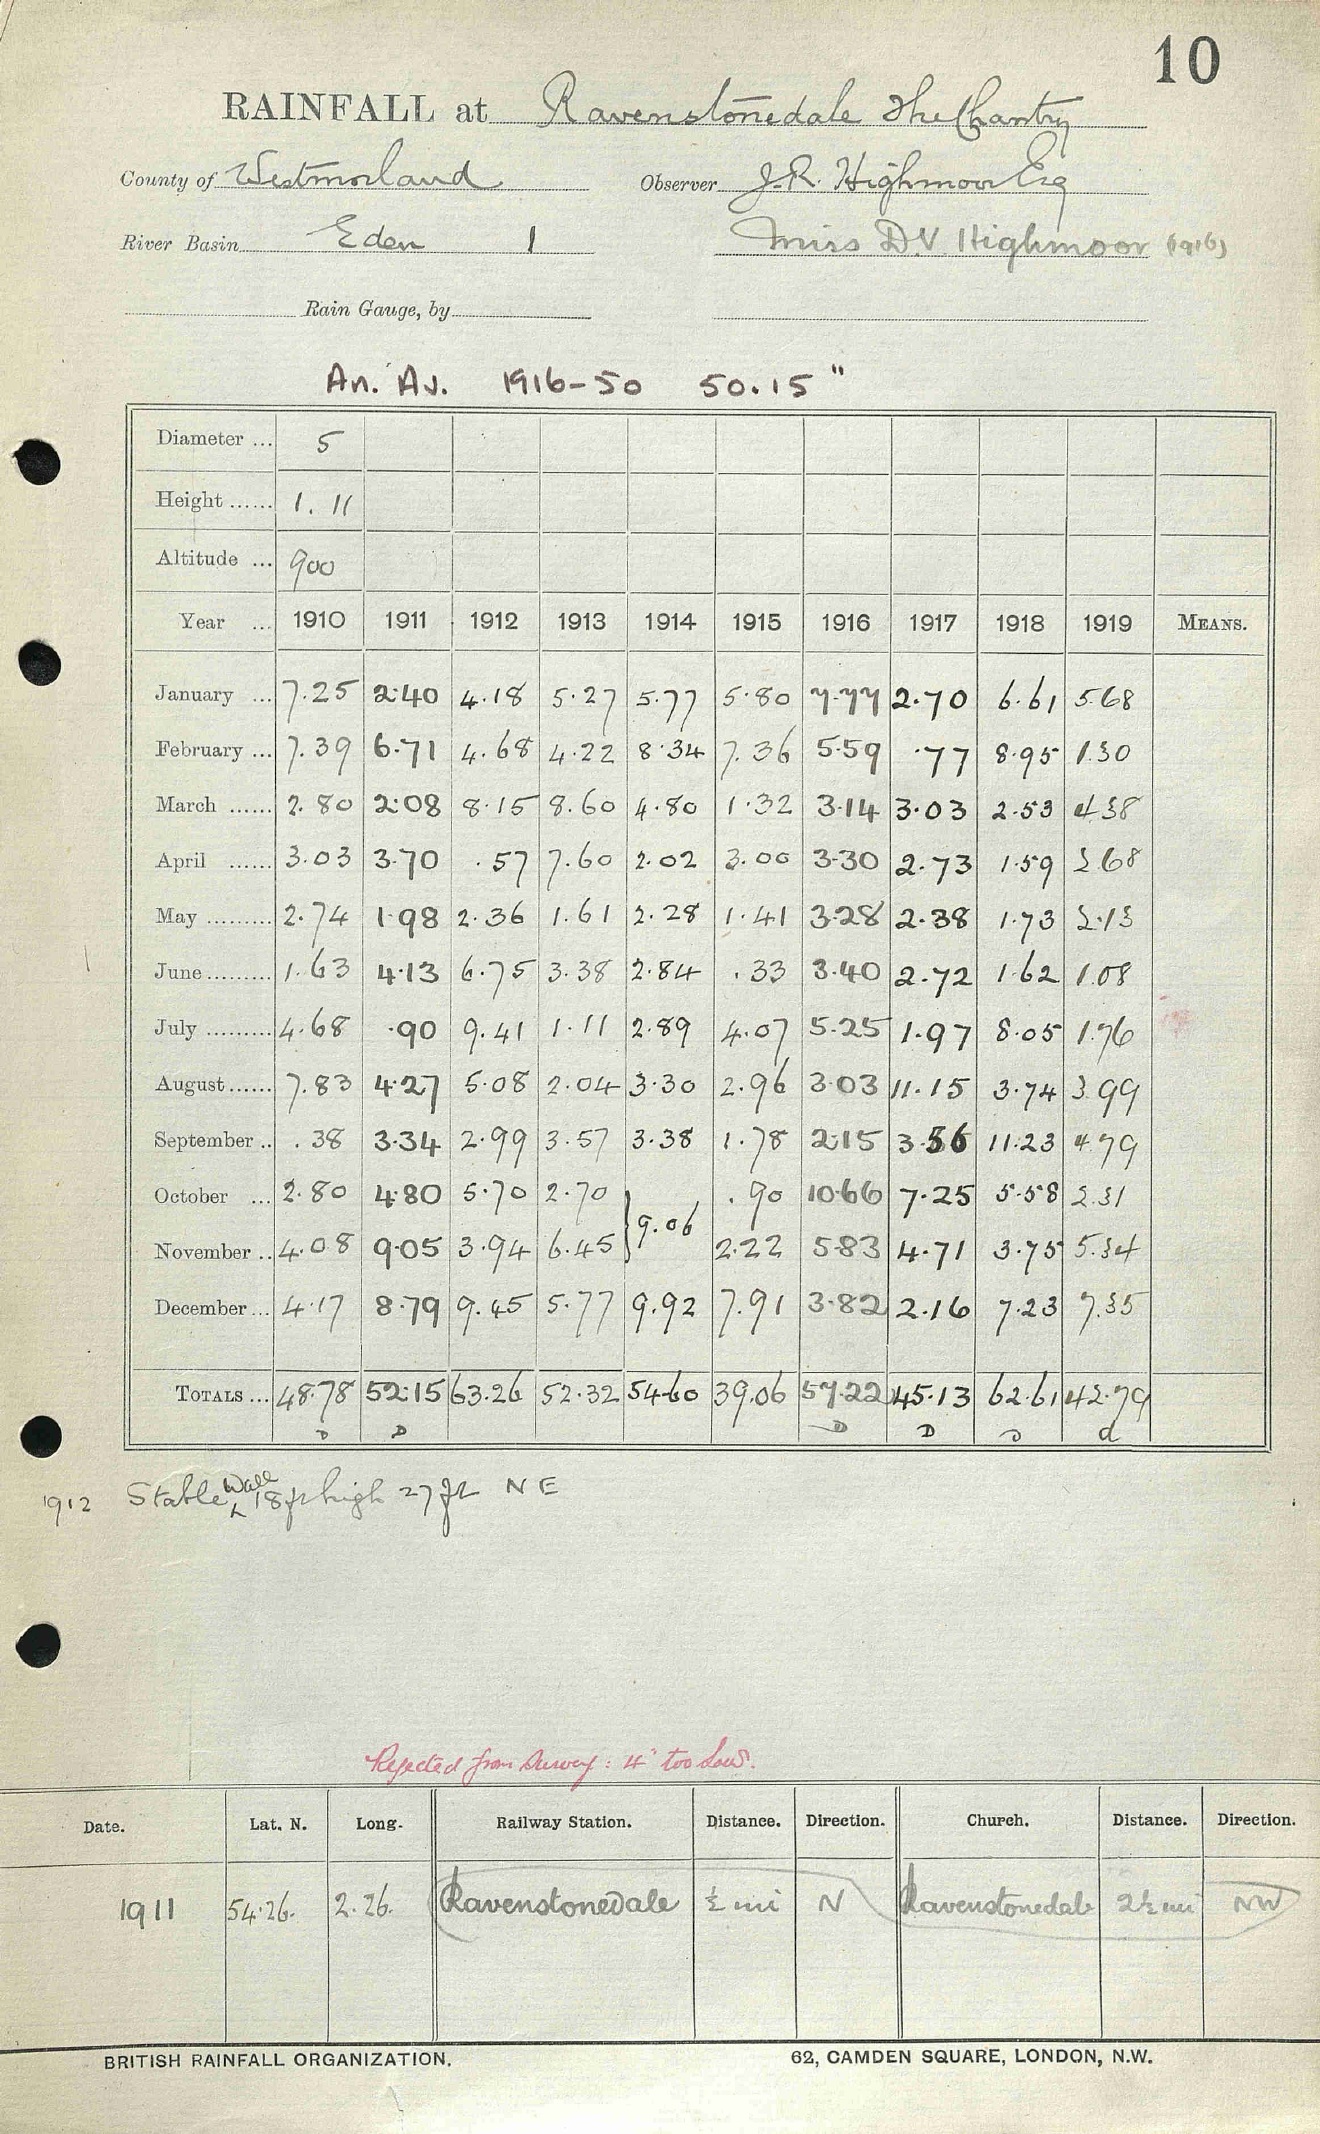 10
RAINFALL at Ravenstonedale The Chantry
County of Westmorland Observer J.R. Highmoor Esq
River Basin Eden 1 Miss D.V. Highmoor (1916)
Rain Gauge, by
An. Av. 1916-50 50.15"
Diameter ... 5
Height ...... 1. 11
Altitude ... 900
Year ... 1910 1911 1912 1913 1914 1915 1916 1917 1918 1919 MEANS.
January ... 7.25 2.40 4.18 5.27 5.77 5.80 7.77 2.70 6.61 5.68
February ... 7.39 6.71 4.68 4.22 8.34 7.36 5.59 .77 8.95 1.30
March ...... 2.80 2.08 8.15 8.60 4.80 1.32 3.14 3.03 2.53 4.38
April ...... 3.03 3.70 .57 7.60 2.02 3.00 3.30 2.73 1.59 2.68
May ......... 2.74 1.98 2.36 1.61 2.28 1.41 3.28 2.38 1.73 2.13
June ......... 1.63 4.13 6.75 3.38 2.84 .33 3.40 2.72 1.62 1.08
July ......... 4.68 .90 9.41 1.11 2.89 4.07 5.25 1.97 8.05 1.76
August ...... 7.83 4.27 5.08 2.04 3.30 2.96 3.03 11.15 3.74 3.99
September .. .38 3.34 2.99 3.57 3.38 1.78 2.15 3.56 11.23 4.79
October ... 2.80 4.80 5.70 2.70 } 9.06 .90 10.66 7.25 5.58 2.31
November .. 4.08 9.05 3.94 6.45 2.22 5.83 4.71 3.75 5.34
December ... 4.17 8.79 9.45 5.77 9.92 7.91 3.82 2.16 7.23 7.35
TOTALS ... 48.78 52.15 63.26 52.32 54.60 39.06 57.22 45.13 62.61 42.79
D D D D D d
1912 Stable Wall 18ft high 27 ft NE
Rejected from Survey: 4" too low.
Date. Lat. N. Long. Railway Station. Distance. Direction. Church. Distance. Direction.
1911 54.26. 2.26. Ravenstonedale ½ mi N Ravenstonedale 2½ mi NW
BRITISH RAINFALL ORGANIZATION. 62, CAMDEN SQUARE, LONDON, N.W.